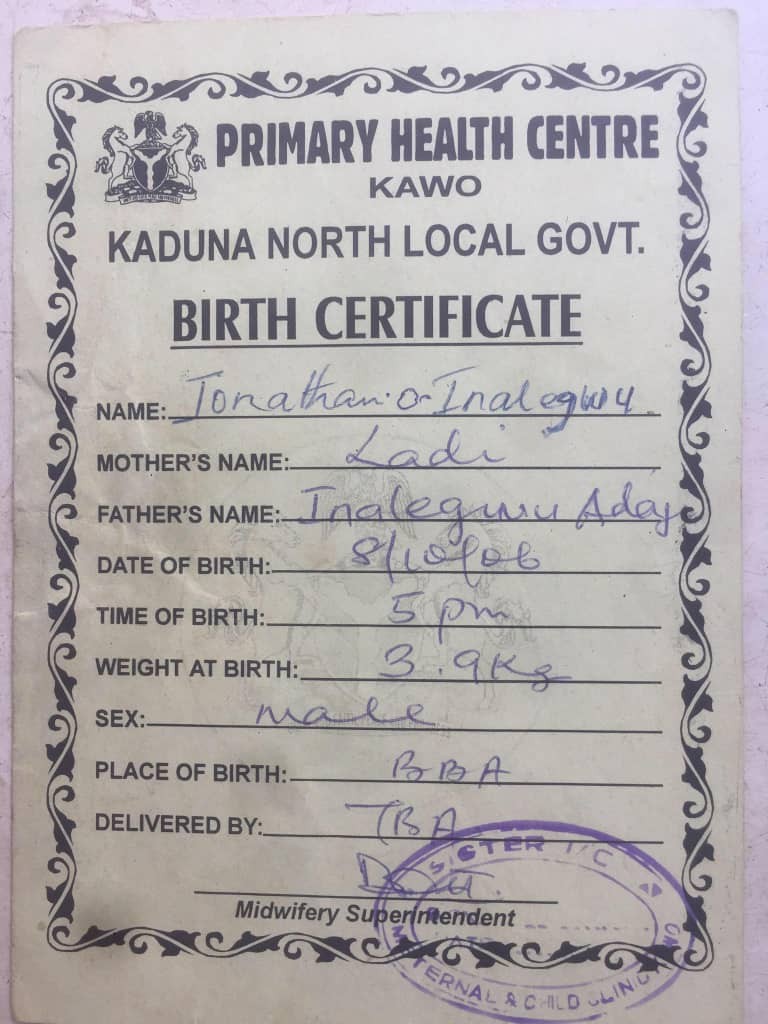 PRIMARY HEALTH CENTRE
KAWO
KADUNA NORTH LOCAL GOVT.
BIRTH CERTIFICATE
NAME: Jonathan.O. Inalegwu.
MOTHER'S NAME: Ladi
FATHER'S NAME: Inalegwu Aday
DATE OF BIRTH: 8/10/06
TIME OF BIRTH: 5 pm
WEIGHT AT BIRTH: 3.9Kg
SEX: male
PLACE OF BIRTH: BBA
DELIVERED BY: TBA
Midwifery Superintendent
SISTER I/C
MATERNAL & CHILD CLINIC